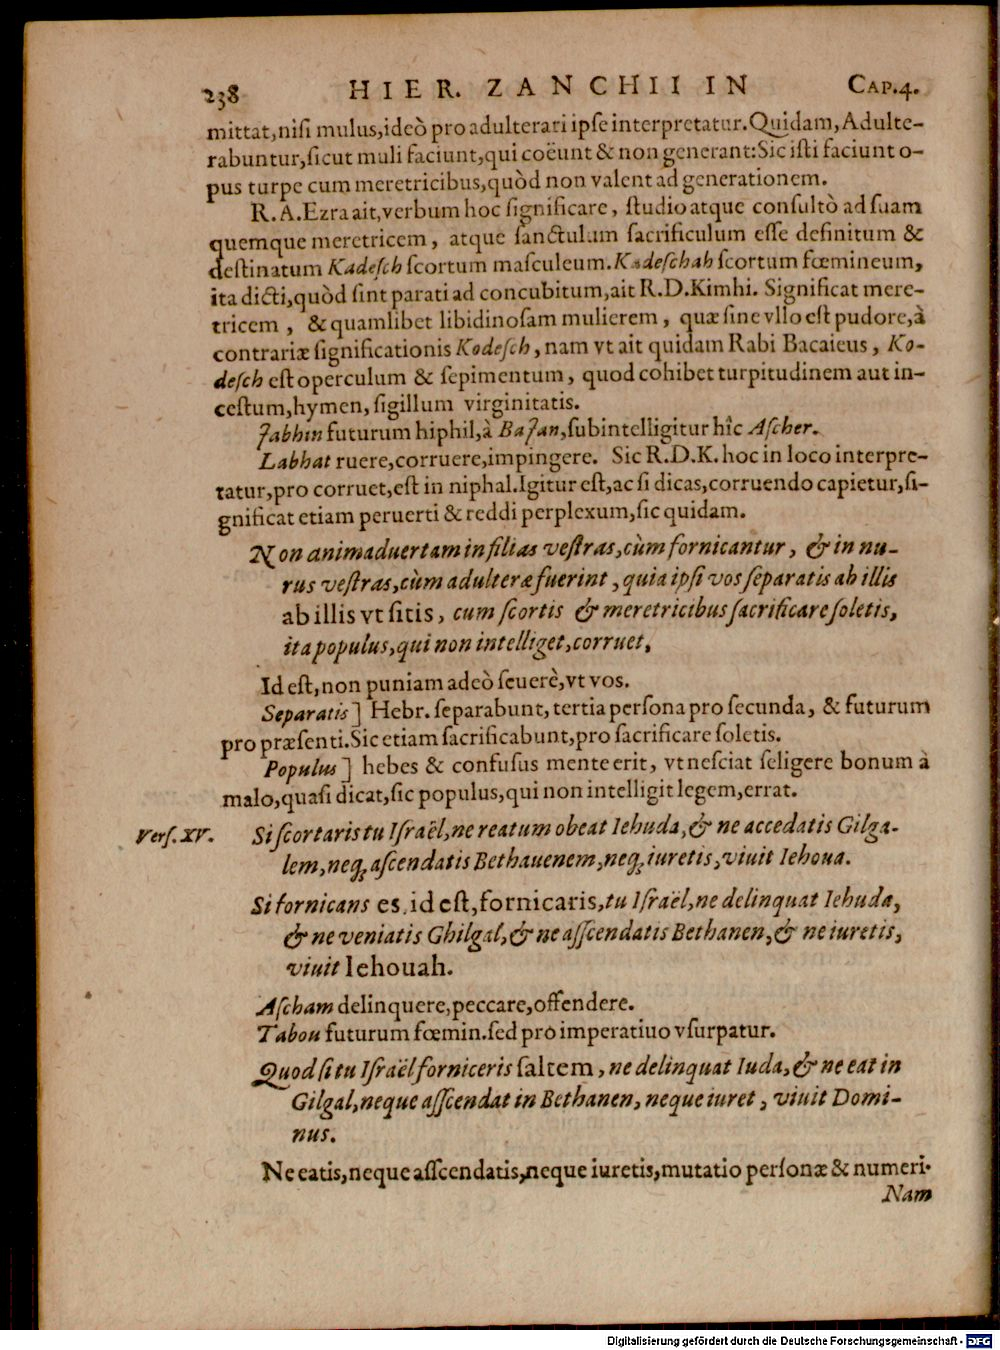 238 HIER. ZANCHII IN CAP.4.
mittat,niſi mulus,ideò pro adulterari ipſe interpretatur.Quidam,Adulte-
rabuntur,ſicut muli faciunt,qui coëunt & non generant:Sic iſti faciunt o-
pus turpe cum meretricibus,quòd non valent ad generationem.
R.A.Ezra ait,verbum hoc ſignificare, ſtudio atque conſultò ad ſuam
quemque meretricem, atque ſanctulum ſacrificulum eſſe definitum &
deſtinatum Kadeſch ſcortum maſculeum.Kadeſchah ſcortum fœmineum,
ita dicti,quòd ſint parati ad concubitum,ait R.D.Kimhi. Significat mere-
tricem, & quamlibet libidinoſam mulierem, quæ ſine vllo eſt pudore,à
contrariæ ſignificationis Kodeſch, nam vt ait quidam Rabi Bacaieus, Ko-
deſch eſt operculum & ſepimentum, quod cohibet turpitudinem aut in-
ceſtum,hymen, ſigillum virginitatis.
Jabhin futurum hiphil,à BaJan,ſubintelligitur hîc Aſcher.
Labhat ruere,corruere,impingere. Sic R.D.K. hoc in loco interpre-
tatur,pro corruet,eſt in niphal.Igitur eſt,ac ſi dicas,corruendo capietur,ſi-
gnificat etiam peruerti & reddi perplexum,ſic quidam.
Non animaduertam in filias veſtras,cùm fornicantur, & in nu-
rus veſtras,cùm adulteræ fuerint, quia ipſi vos ſeparatis ab illis
ab illis vt ſitis, cum ſcortis & meretricibus ſacrificare ſoletis,
ita populus,qui non intelliget,corruet,
Id eſt,non puniam adeò ſeuerè,vt vos.
Separatis] Hebr. ſeparabunt, tertia perſona pro ſecunda, & futurum
pro præſenti.Sic etiam ſacrificabunt,pro ſacrificare ſoletis.
Populus] hebes & confuſus mente erit, vt neſciat ſeligere bonum à
malo,quaſi dicat,ſic populus,qui non intelligit legem,errat.
Verſ.XV. Si ſcortaris tu Iſraël,ne reatum obeat Iehuda,& ne accedatis Gilga-
lem,neq; aſcendatis Bethauenem,neq; iuretis,viuit Iehoua.
Si fornicans es,id eſt,fornicaris,tu Iſraël,ne delinquat Iehuda,
& ne veniatis Ghilgal,& ne aſſcendatis Bethanen,& ne iuretis,
viuit Iehouah.
Aſcham delinquere,peccare,offendere.
Tabou futurum fœmin.ſed pro imperatiuo vſurpatur.
Quod ſi tu Iſraël forniceris ſaltem, ne delinquat Iuda,& ne eat in
Gilgal,neque aſſcendat in Bethanen, neque iuret, viuit Domi-
nus.
Ne eatis,neque aſſcendatis,neque iuretis,mutatio perſonæ & numeri.
Nam
Digitalisierung gefördert durch die Deutsche Forschungsgemeinschaft - DFG